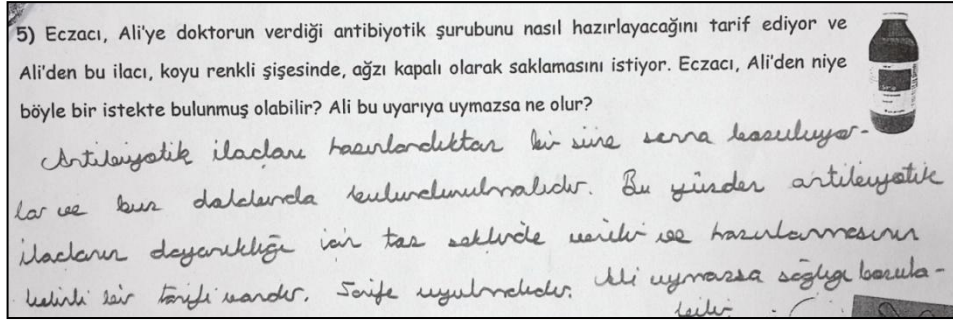 5) Eczacı, Ali'ye doktorun verdiği antibiyotik şurubunu nasıl hazırlayacağını tarif ediyor ve
Ali'den bu ilacı, koyu renkli şişesinde, ağzı kapalı olarak saklamasını istiyor. Eczacı, Ali'den niye
böyle bir istekte bulunmuş olabilir? Ali bu uyarıya uymazsa ne olur?
Antibiyotik ilaçları hazırlandıktan bir süre sonra bozuluyor-
lar ve buz dolabında bulundurulmalıdır. Bu yüzden antibiyotik
ilaçların dayanıklığı için toz şeklinde verilir ve hazırlanmasının
belirli bir tarifi vardır. Tarife uyulmalıdır. Ali uymazsa sağlığı bozula-
bilir.